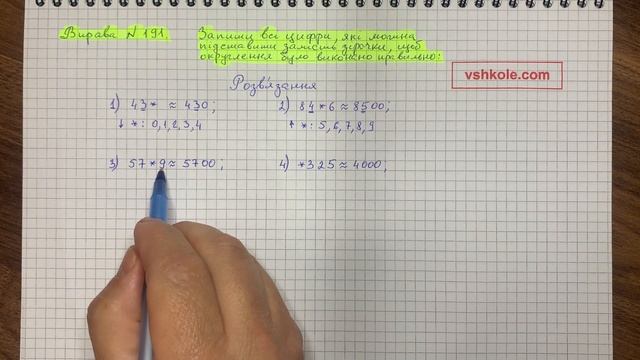 Вправа №191. Запиши всі цифри, які можна
підставити замість зірочки, щоб
округлення було виконано правильно:
vshkole.com
Розв'язання
1) 43* ≈ 430; 2) 84*6 ≈ 8500;
↓ *: 0,1,2,3,4 ↑ *: 5,6,7,8,9
3) 57*9 ≈ 5700; 4) *325 ≈ 4000;